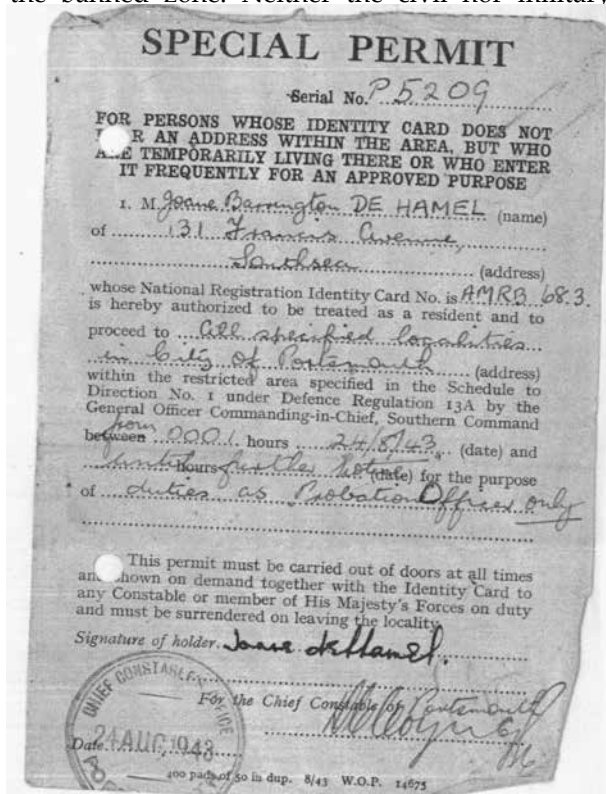 the banned zone. Neither the civil nor military
SPECIAL PERMIT
Serial No. P 5209
FOR PERSONS WHOSE IDENTITY CARD DOES NOT
R AN ADDRESS WITHIN THE AREA, BUT WHO
ARE TEMPORARILY LIVING THERE OR WHO ENTER
IT FREQUENTLY FOR AN APPROVED PURPOSE
1. M. Joane Barrington DE HAMEL (name)
of 131 Francis Avenue,
Southsea (address)
whose National Registration Identity Card No. is AMRB 68.3.
is hereby authorized to be treated as a resident and to
proceed to All specified localities
in City of Portsmouth (address)
within the restricted area specified in the Schedule to
Direction No. 1 under Defence Regulation 13A by the
General Officer Commanding-in-Chief, Southern Command
from
between 0001 hours 24/8/43. (date) and
until hours further notice (date) for the purpose
of duties as Probation Officer only
This permit must be carried out of doors at all times
and shown on demand together with the Identity Card to
any Constable or member of His Majesty's Forces on duty
and must be surrendered on leaving the locality.
Signature of holder. Joane de Hamel.
CHIEF CONSTABLE'S OFFICE
For the Chief Constable of Portsmouth
Date 24 AUG 1943
400 pads of 50 in dup. 8/43 W.O.P. 14675